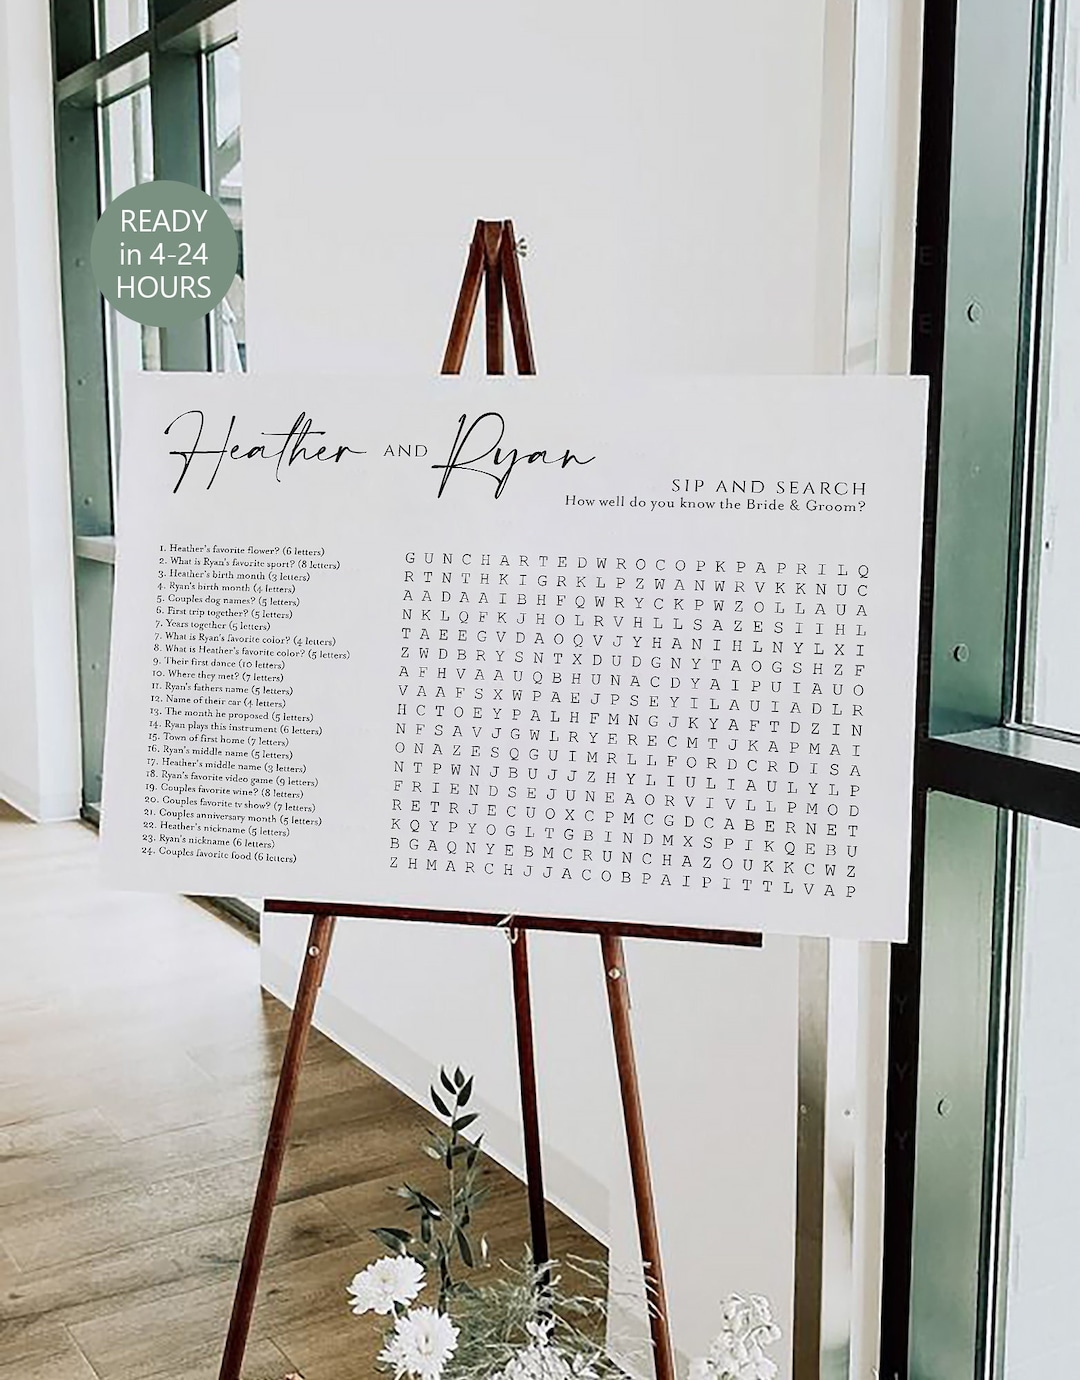 READY
in 4-24
HOURS
Heather AND Ryan
SIP AND SEARCH
How well do you know the Bride & Groom?
1. Heather's favorite flower? (6 letters)
2. What is Ryan's favorite sport? (8 letters)
3. Heather's birth month (3 letters)
4. Ryan's birth month (4 letters)
5. Couples dog names? (5 letters)
6. First trip together? (5 letters)
7. Years together (5 letters)
7. What is Ryan's favorite color? (4 letters)
8. What is Heather's favorite color? (5 letters)
9. Their first dance (10 letters)
10. Where they met? (7 letters)
11. Ryan's fathers name (5 letters)
12. Name of their car (4 letters)
13. The month he proposed (5 letters)
14. Ryan plays this instrument (6 letters)
15. Town of first home (7 letters)
16. Ryan's middle name (5 letters)
17. Heather's middle name (3 letters)
18. Ryan's favorite video game (9 letters)
19. Couples favorite wine? (8 letters)
20. Couples favorite tv show? (7 letters)
21. Couples anniversary month (5 letters)
22. Heather's nickname (5 letters)
23. Ryan's nickname (6 letters)
24. Couples favorite food (6 letters)
G U N C H A R T E D W R O C O P K P A P R I L Q
R T N T H K I G R K L P Z W A N W R V K K N U C
A A D A A I B H F Q W R Y C K P W Z O L L A U A
N K L Q F K J H O L R V H L L S A Z E S I I H L
T A E E G V D A O Q V J Y H A N I H L N Y L X I
Z W D B R Y S N T X D U D G N Y T A O G S H Z F
A F H V A A U Q B H U N A C D Y A I P U I A U O
V A A F S X W P A E J P S E Y I L A U I A D L R
H C T O E Y P A L H F M N G J K Y A F T D Z I N
N F S A V J G W L R Y E R E C M T J K A P M A I
O N A Z E S Q G U I M R L L F O R D C R D I S A
N T P W N J B U J J Z H Y L I U L I A U L Y L P
F R I E N D S E J U N E A O R V I V L L P M O D
R E T R J E C U O X C P M C G D C A B E R N E T
K Q Y P Y O G L T G B I N D M X S P I K Q E B U
B G A Q N Y E B M C R U N C H A Z O U K K C W Z
Z H M A R C H J J A C O B P A I P I T T L V A P